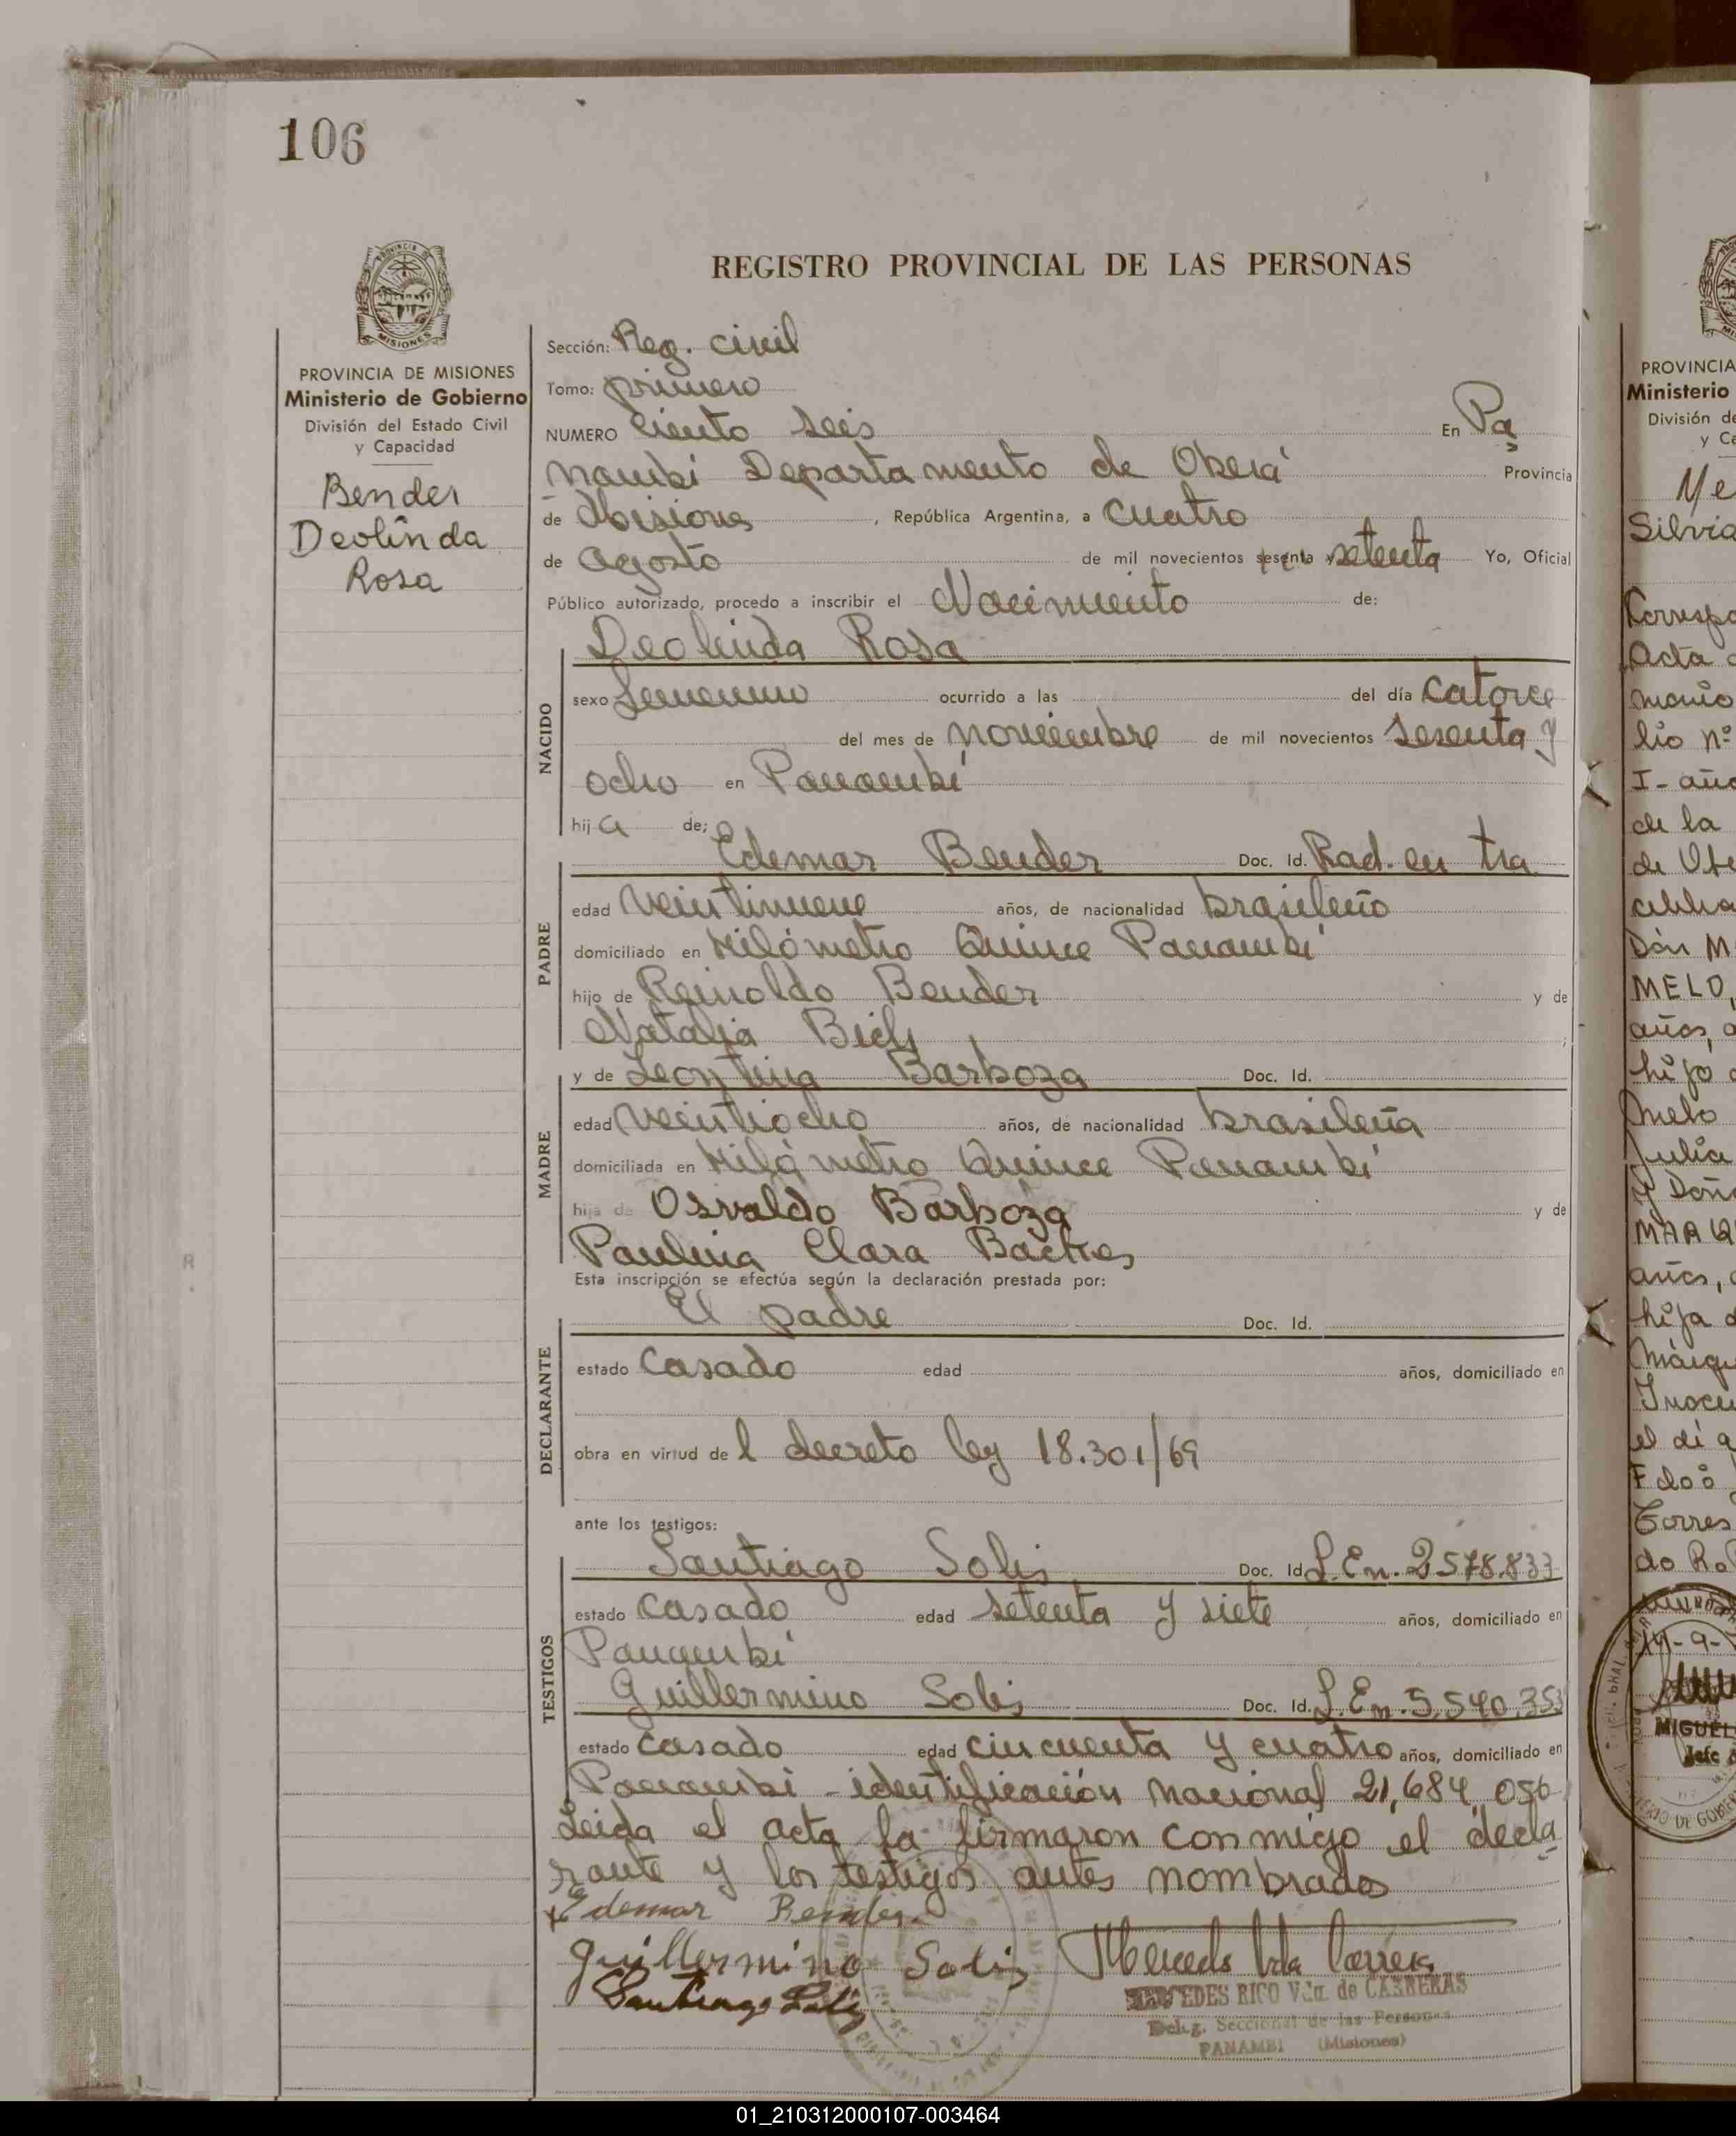 106
REGISTRO PROVINCIAL DE LAS PERSONAS
MISIONES
PROVINCIA DE MISIONES
Ministerio de Gobierno
División del Estado Civil
y Capacidad
Bender
Deolinda
Rosa
Sección: Reg. civil
Tomo: primero
NUMERO ciento seis En Pa
nambí Departamento de Oberá Provincia
de Misiones, República Argentina, a cuatro
de agosto de mil novecientos sesenta y setenta Yo, Oficial
Público autorizado, procedo a inscribir el Nacimiento de:
NACIDO
Deolinda Rosa
sexo femenino ocurrido a las del día catorce
del mes de noviembre de mil novecientos sesenta y
ocho en Panambí
hija de;
PADRE
Edemar Bender Doc. Id. Rad. en tra
edad veintinueve años, de nacionalidad brasileño
domiciliado en Kilómetro Quince Panambí
hijo de Reinoldo Bender y de
Natalia
MADRE
y de Leontina Barboza Doc. Id.
edad veintiocho años, de nacionalidad brasileña
domiciliada en Kilómetro Quince Panambí
hija de Osvaldo Barboza y de
Paulina Clara
Esta inscripción se efectúa según la declaración prestada por:
DECLARANTE
El padre Doc. Id.
estado casado edad años, domiciliado en
obra en virtud del decreto ley 18.301/69
ante los testigos:
TESTIGOS
Santiago Solis Doc. Id. L.En. 2578.833
estado casado edad setenta y siete años, domiciliado en
Panambí
Guillermino Solis Doc. Id. L.En. 5.540.353
estado casado edad cincuenta y cuatro años, domiciliado en
Panambí - identificación nacional 21,684,056
Leida el acta la firmaron conmigo el decla
rante y los testigos antes nombrados
Edemar Bender
Guillermino Solis
Santiago Solis
MERCEDES RICO Vda. de CARRERAS
Deleg. Seccional de las Personas
PANAMBI (Misiones)
PROVINCIA
Ministerio
División de
Silvia
Acta
de la
MELO,
hijo
hija
Torres
14-9-
MIGUEL
Jefe
01_210312000107-003464